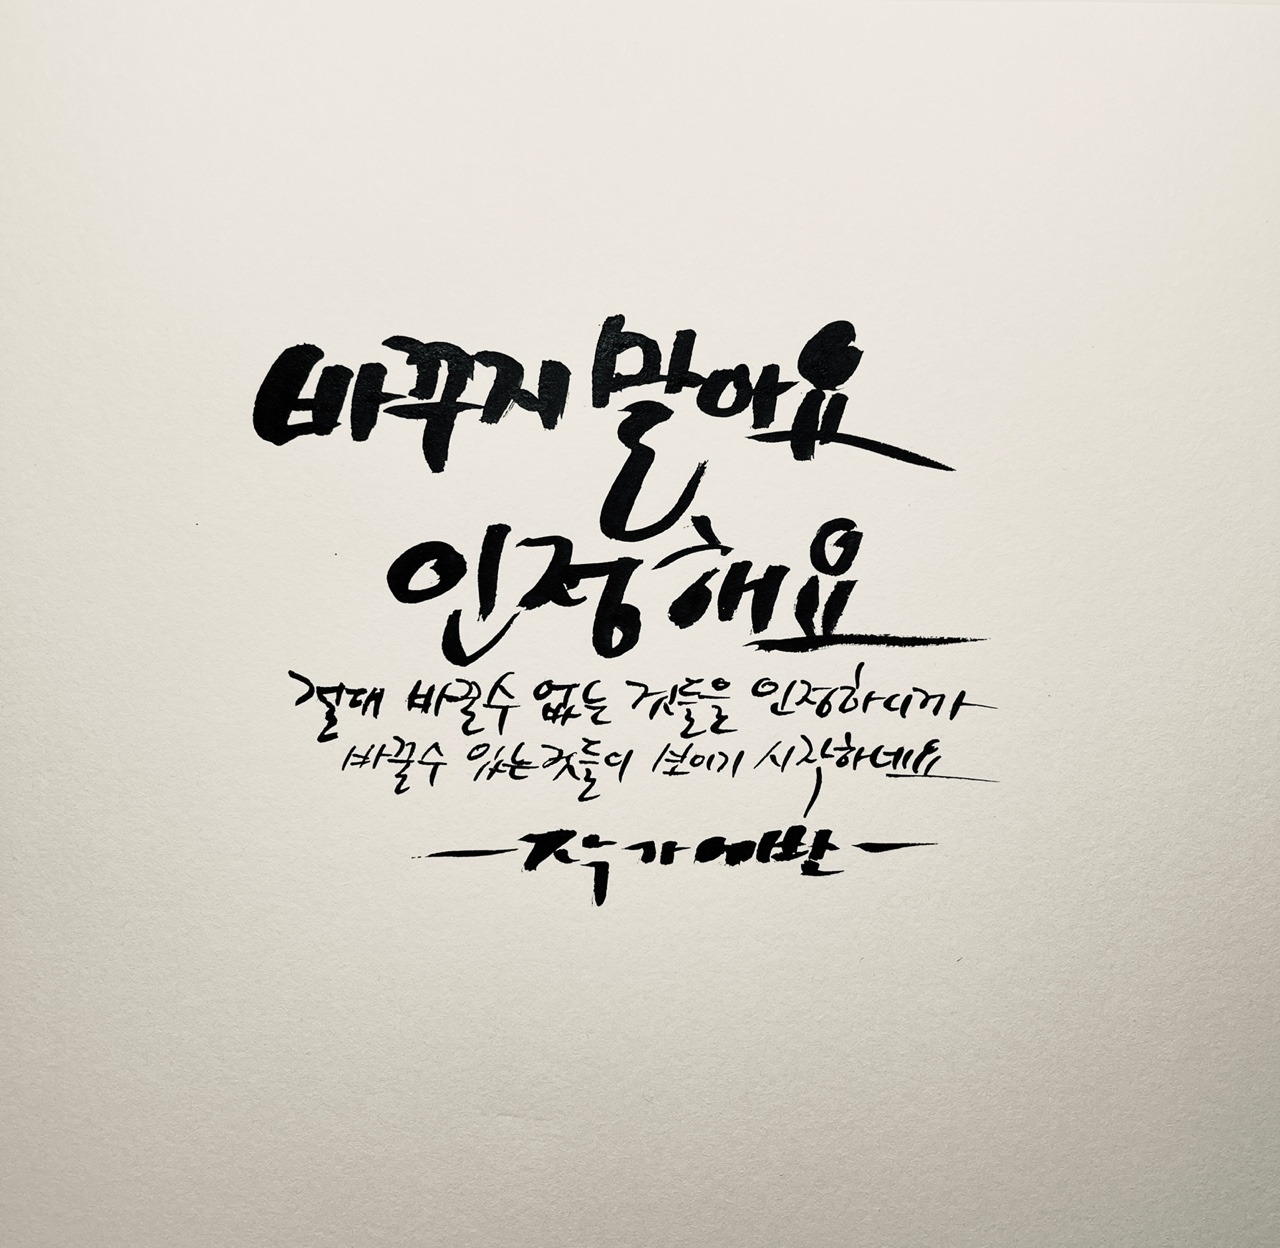 바꾸지 말아요
인정해요
절대 바꿀수 없는 것들을 인정하니까
바꿀수 있는것들이 보이기 시작하네요
작가 에반